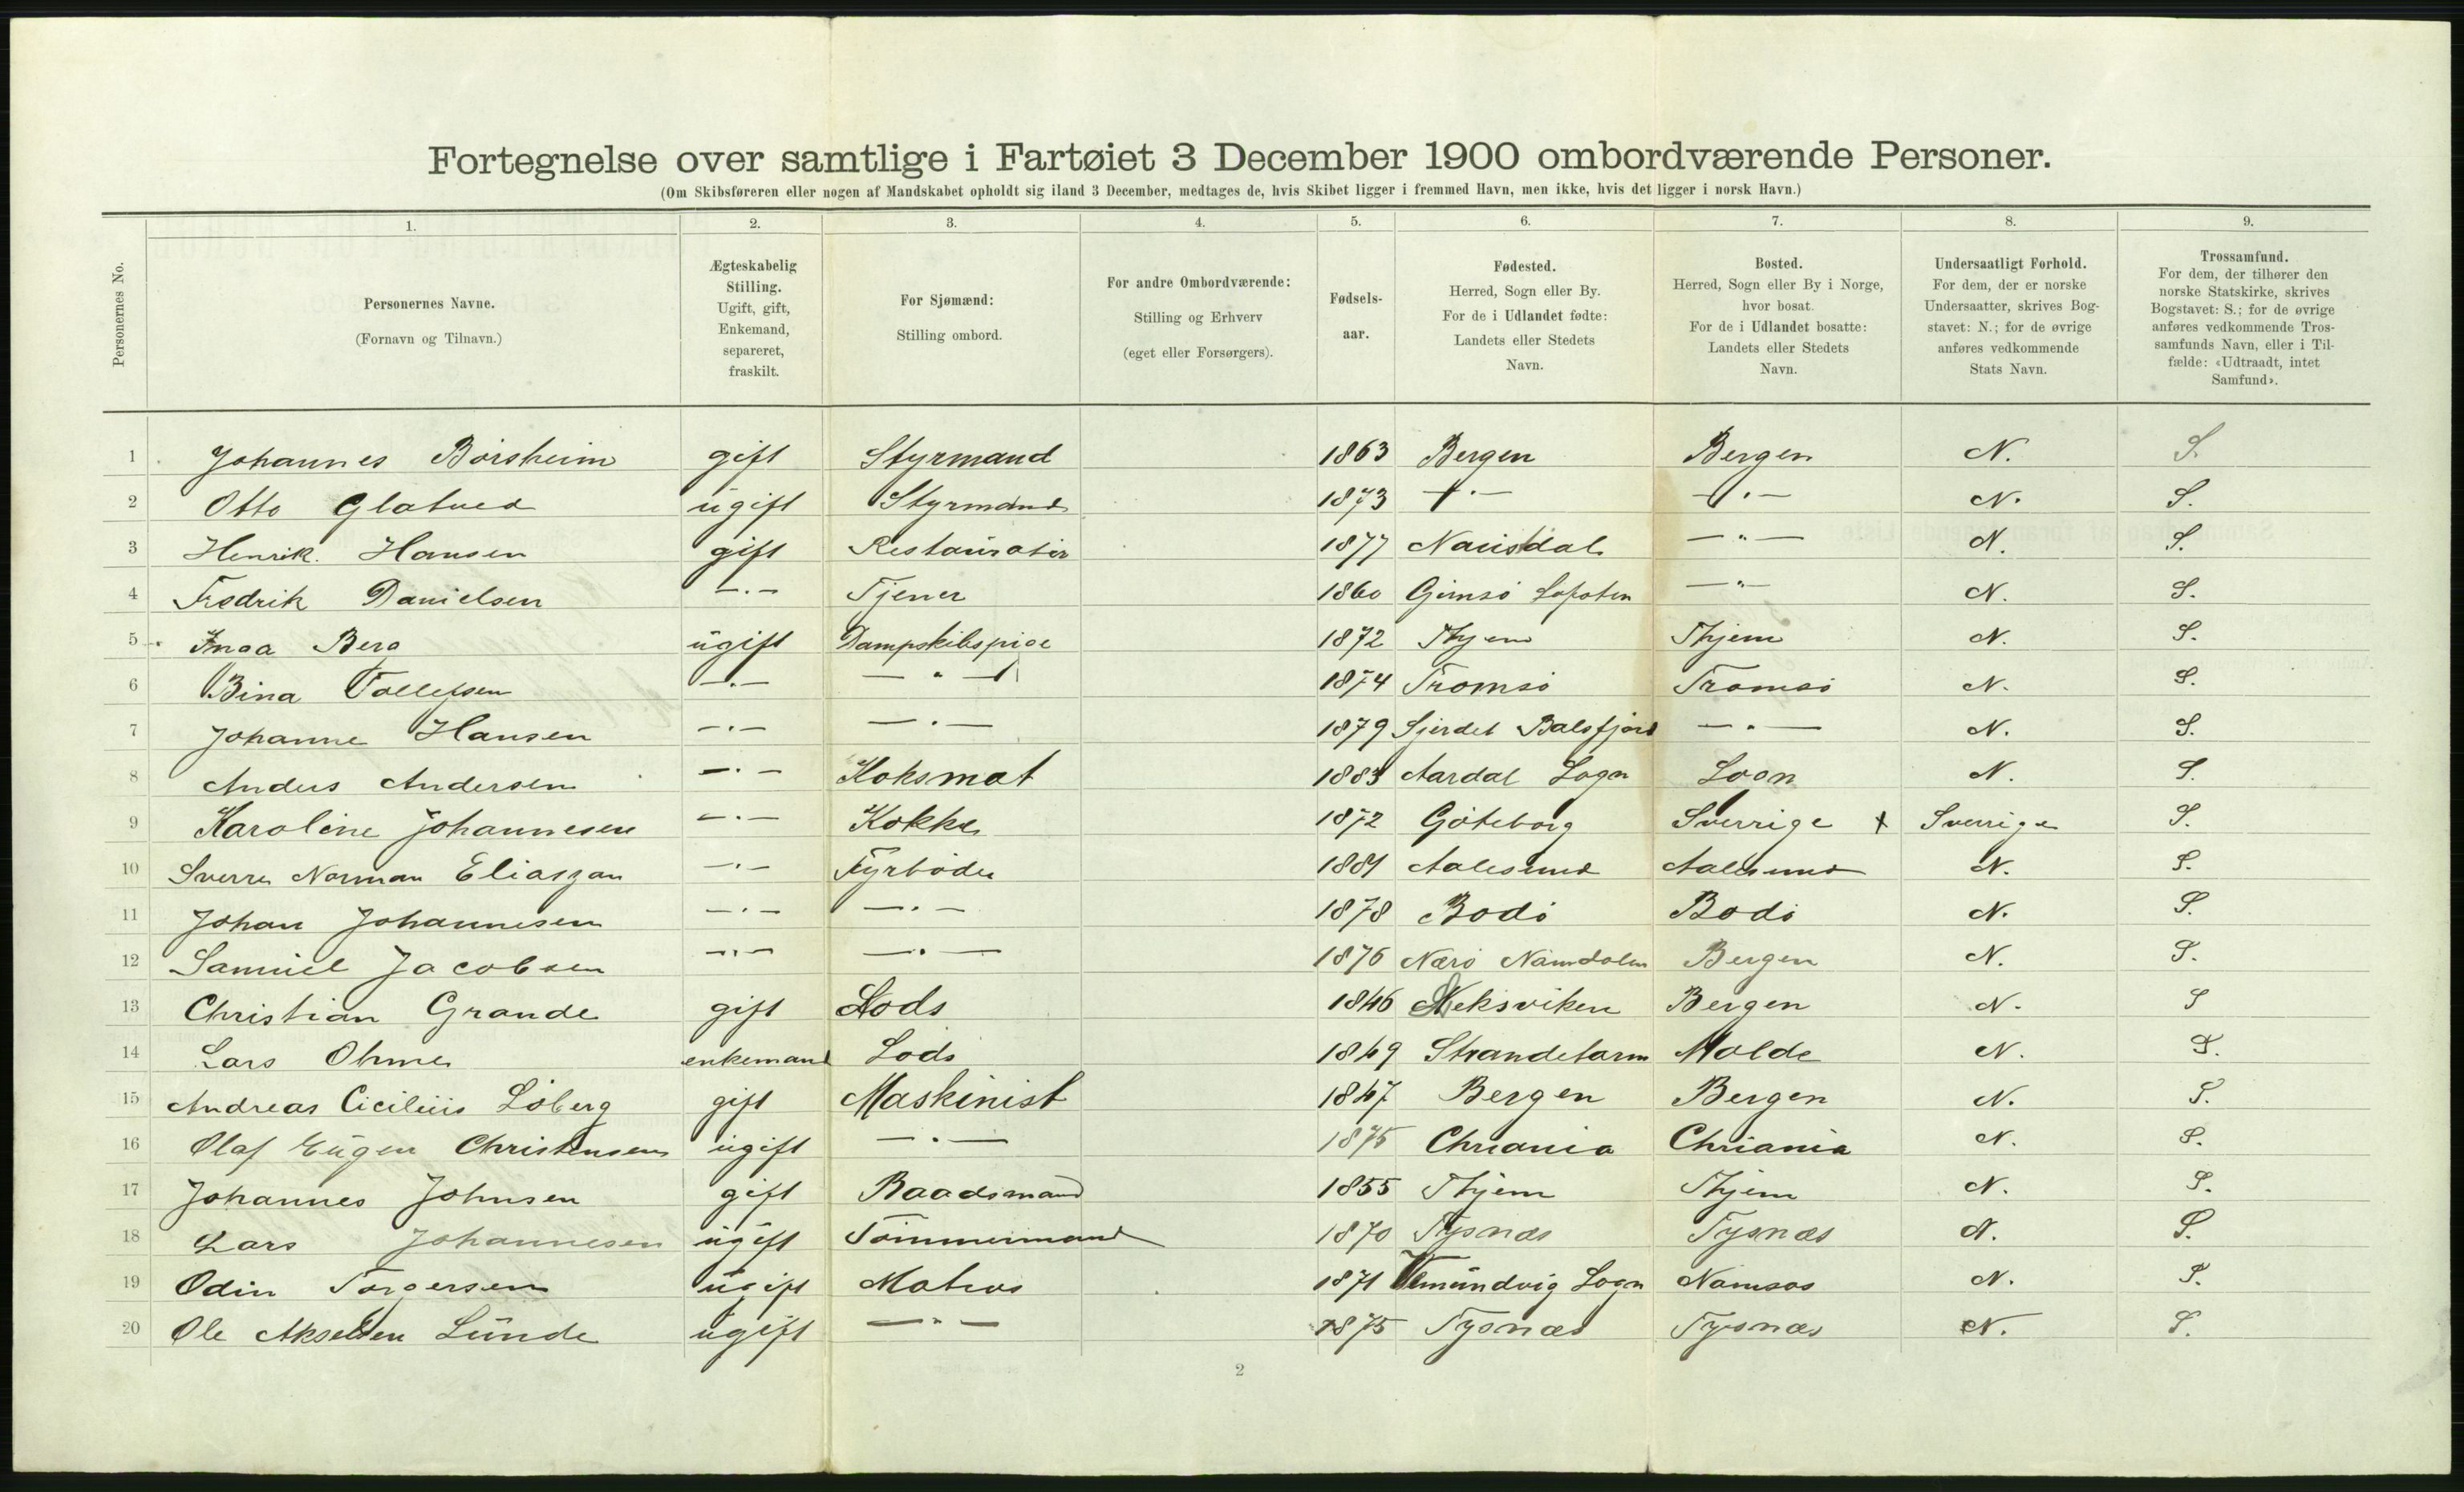 Fortegnelse over samtlige i Fartøiet 3 December 1900 ombordværende Personer.
(Om Skibsføreren eller nogen af Mandskabet opholdt sig iland 3 December, medtages de, hvis Skibet ligger i fremmed Havn, men ikke, hvis det ligger i norsk Havn.)
Personernes No.
1. 2. 3. 4. 5. 6. 7. 8. 9.
Personernes Navne.
(Fornavn og Tilnavn.)
Ægteskabelig
Stilling.
Ugift, gift,
Enkemand,
separeret,
fraskilt.
For Sjømænd:
Stilling ombord.
For andre Ombordværende:
Stilling og Erhverv
(eget eller Forsørgers).
Fødsels-
aar.
Fødested.
Herred, Sogn eller By.
For de i Udlandet fødte:
Landets eller Stedets
Navn.
Bosted.
Herred, Sogn eller By i Norge,
hvor bosat.
For de i Udlandet bosatte:
Landets eller Stedets
Navn.
Undersaatligt Forhold.
For dem, der er norske
Undersaatter, skrives Bog-
stavet: N.; for de øvrige
anføres vedkommende
Stats Navn.
Trossamfund.
For dem, der tilhører den
norske Statskirke, skrives
Bogstavet: S.; for de øvrige
anføres vedkommende Tros-
samfunds Navn, eller i Til-
fælde: «Udtraadt, intet
Samfund».
1 Johannes Börsheim gift Styrmand 1863 Bergen Bergen N. S.
2 Otto Glatved ugift Styrmand 1873 —"— —"— N. S.
3 Henrik Hansen gift Restauratör 1877 Naustdal —"— N. S.
4 Fredrik Danielsen —"— Tjener 1860 Gimsö Lofoten —"— N. S.
5 Inga Berg ugift Dampskibspige 1872 Thjem Thjem N. S.
6 Bina Tollefsen —"— —"— 1874 Tromsö Tromsö N. S.
7 Johanne Hansen —"— —"— 1879 Balsfjord —"— N. S.
8 Anders Andersen —"— Koksmat 1883 Aardal Sogn Sogn N. S.
9 Karoline Johannesen —"— Kokke 1872 Göteborg Sverrige x Sverrige S.
10 Sverre Norman Eliaszan —"— Fyrböder 1881 Aalesund Aalesund N. S.
11 Johan Johannesen —"— —"— 1878 Bodö Bodö N. S.
12 Samuel Jacobsen —"— —"— 1876 Nærö Namdalen Bergen N. S.
13 Christian Grande gift Lods 1846 Leksviken Bergen N. S
14 Lars Ohme enkemand Lods 1849 Strandebarm Molde N. S.
15 Andreas Ciciliüs Löberg gift Maskinist 1847 Bergen Bergen N. S.
16 Olaf Eugen Christensen ugift —"— 1875 Chriania Chriania N. S.
17 Johannes Johnsen gift Baadsmand 1855 Thjem Thjem N. S.
18 Lars Johannesen ugift Tömmermand 1870 Tysnæs Tysnæs N. S.
19 Odin Torgersen ugift Matros 1871 Vemundvig Sogn Namsos N. S.
20 Ole Akselsen Lunde ugift —"— 1875 Tysnæs Tysnæs N. S.
2